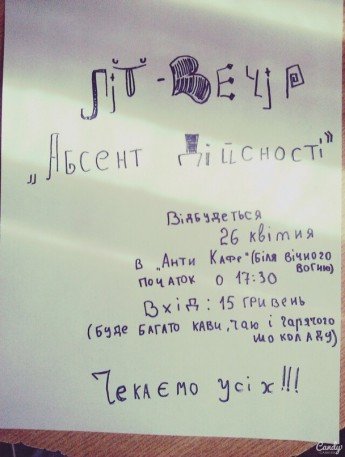 Літ-Вечір
„Абсент Дійсності"
Відбудеться
26 квітня
в „Анти Кафе" (біля вічного
вогню)
початок о 17:30
Вхід: 15 гривень
(буде багато кави, чаю і гарячого
шоколаду)
Чекаємо усіх!!!
Candy